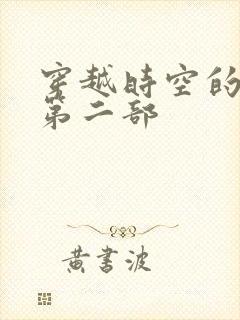 穿越時空的
第二部
黃書波